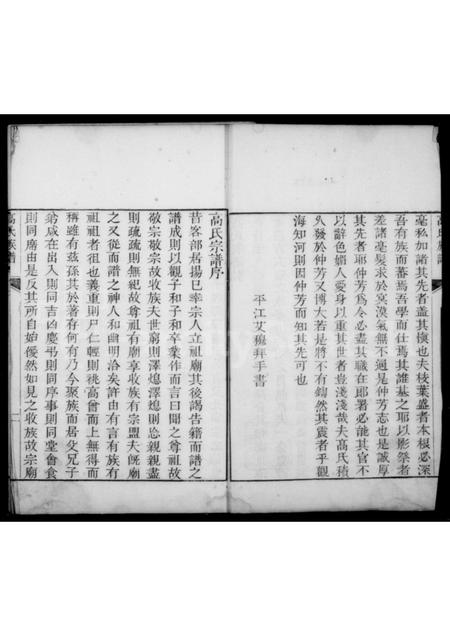 毫私加諸其先者盡其懷也夫枝葉盛者本根必深
吾有族而蕃焉吾學而仕焉其誰基之耶以影祭者
差諸毫髮求於冥漠氣無不通是仲芳志也是誠厚
其先者耶仲芳爲令必盡其職在郎署必能其官不
以辭色媚人愛身以重其世者豈淺淺哉夫高氏積
久發於仲芳又博大若是將不有鏘然其震者乎觀
海知河則因仲芳而知其先可也
平江艾穆拜手書
高氏宗譜序
昔客部居揚巳率宗人立祖廟其後謁告籍而譜之
譜成則以觀子和子和卒業作而言曰聞之尊祖故
敬宗敬宗故收族夫世窮則澤熄澤熄則忘親親盡
則疏疏則無紀故尊祖有廟享收族有宗盟夫旣廟
之又從而譜之神人和幽明洽矣許由有言有族有
祖祖者徂也義重則尸仁輕則祧高曾而上無得而
稱雖有茲孫其於著存何有乃今聚族而居父兄子
弟咸在出入則同吉凶慶弔則同序事則同堂會食
則同席由是反其所自始僾然如見之收族故宗廟
高氏族譜